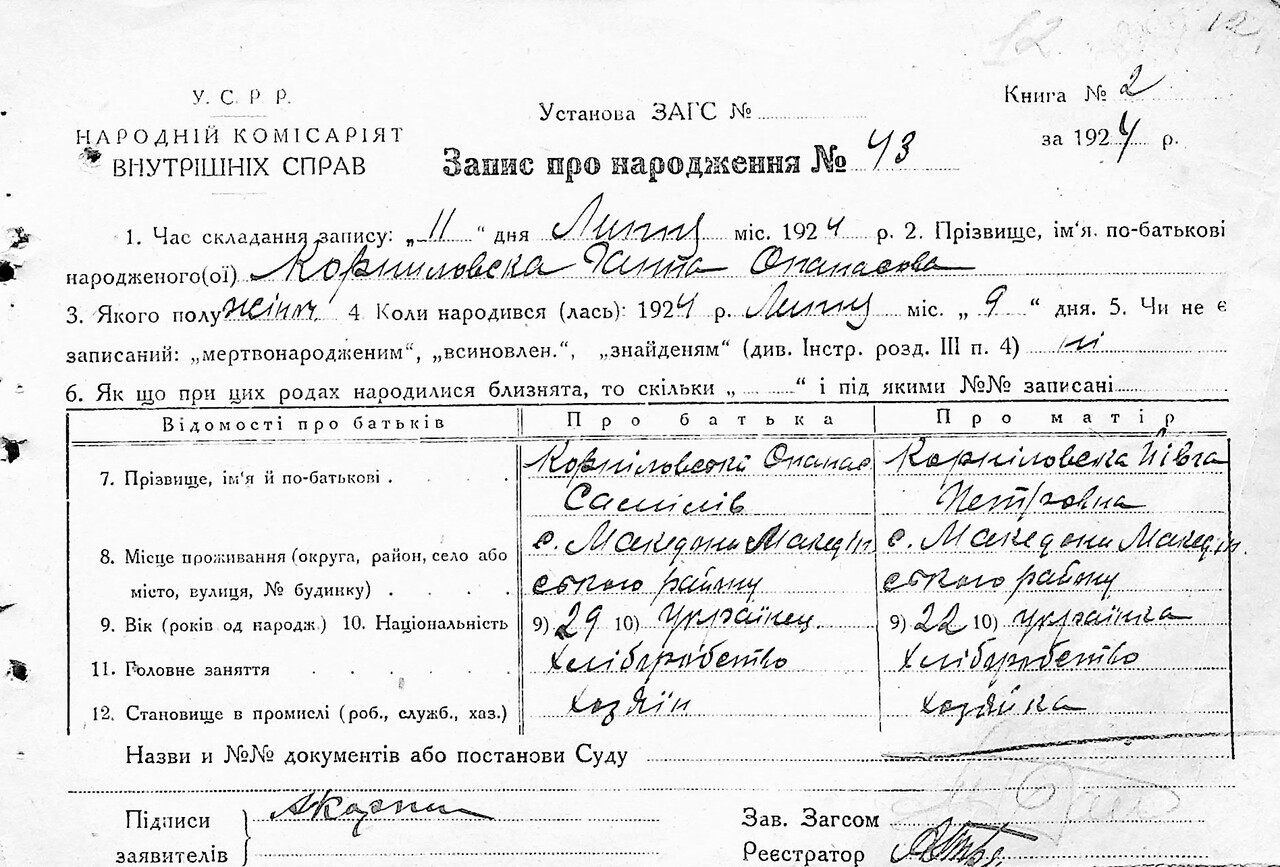 12
У. С. Р. Р.
НАРОДНІЙ КОМІСАРІЯТ
ВНУТРІШНІХ СПРАВ
Установа ЗАГС №
Книга № 2
за 1924 р.
Запис про народження № 43
1. Час складання запису: „11" дня Липня міс. 1924 р. 2. Прізвище, ім'я. по-батькові
народженого(ої) Корніловска Ганна Опанасова
3. Якого полу жіноч. 4 Коли народився (лась): 1924 р. Липня міс. „9" дня. 5. Чи не є
записаний: „мертвонародженим", „всиновлен.", „знайденям" (див. Інстр. розд. III п. 4) ні
6. Як що при цих родах народилися близнята, то скільки „ " і під якими №№ записані
Відомості про батьків Про батька Про матір
7. Прізвище, ім'я й по-батькові . . . . Корніловські Опанас Самілів Корніловська Йівга Петровна
8. Місце проживання (округа, район, село або місто, вулиця, № будинку) . . . . с. Македони Македін ського району с. Македони Македін ського району
9. Вік (років од народж.) 10. Національність 9) 29 10) Українец. 9) 22 10) Українка
11. Головне заняття . . . . . Хліборобство Хліборобство
12. Становище в промислі (роб., служб., хаз.) Хозяїн Хозяйка
Назви и №№ документів або постанови Суду
Підписи
заявителів
Зав. Загсом
Реєстратор